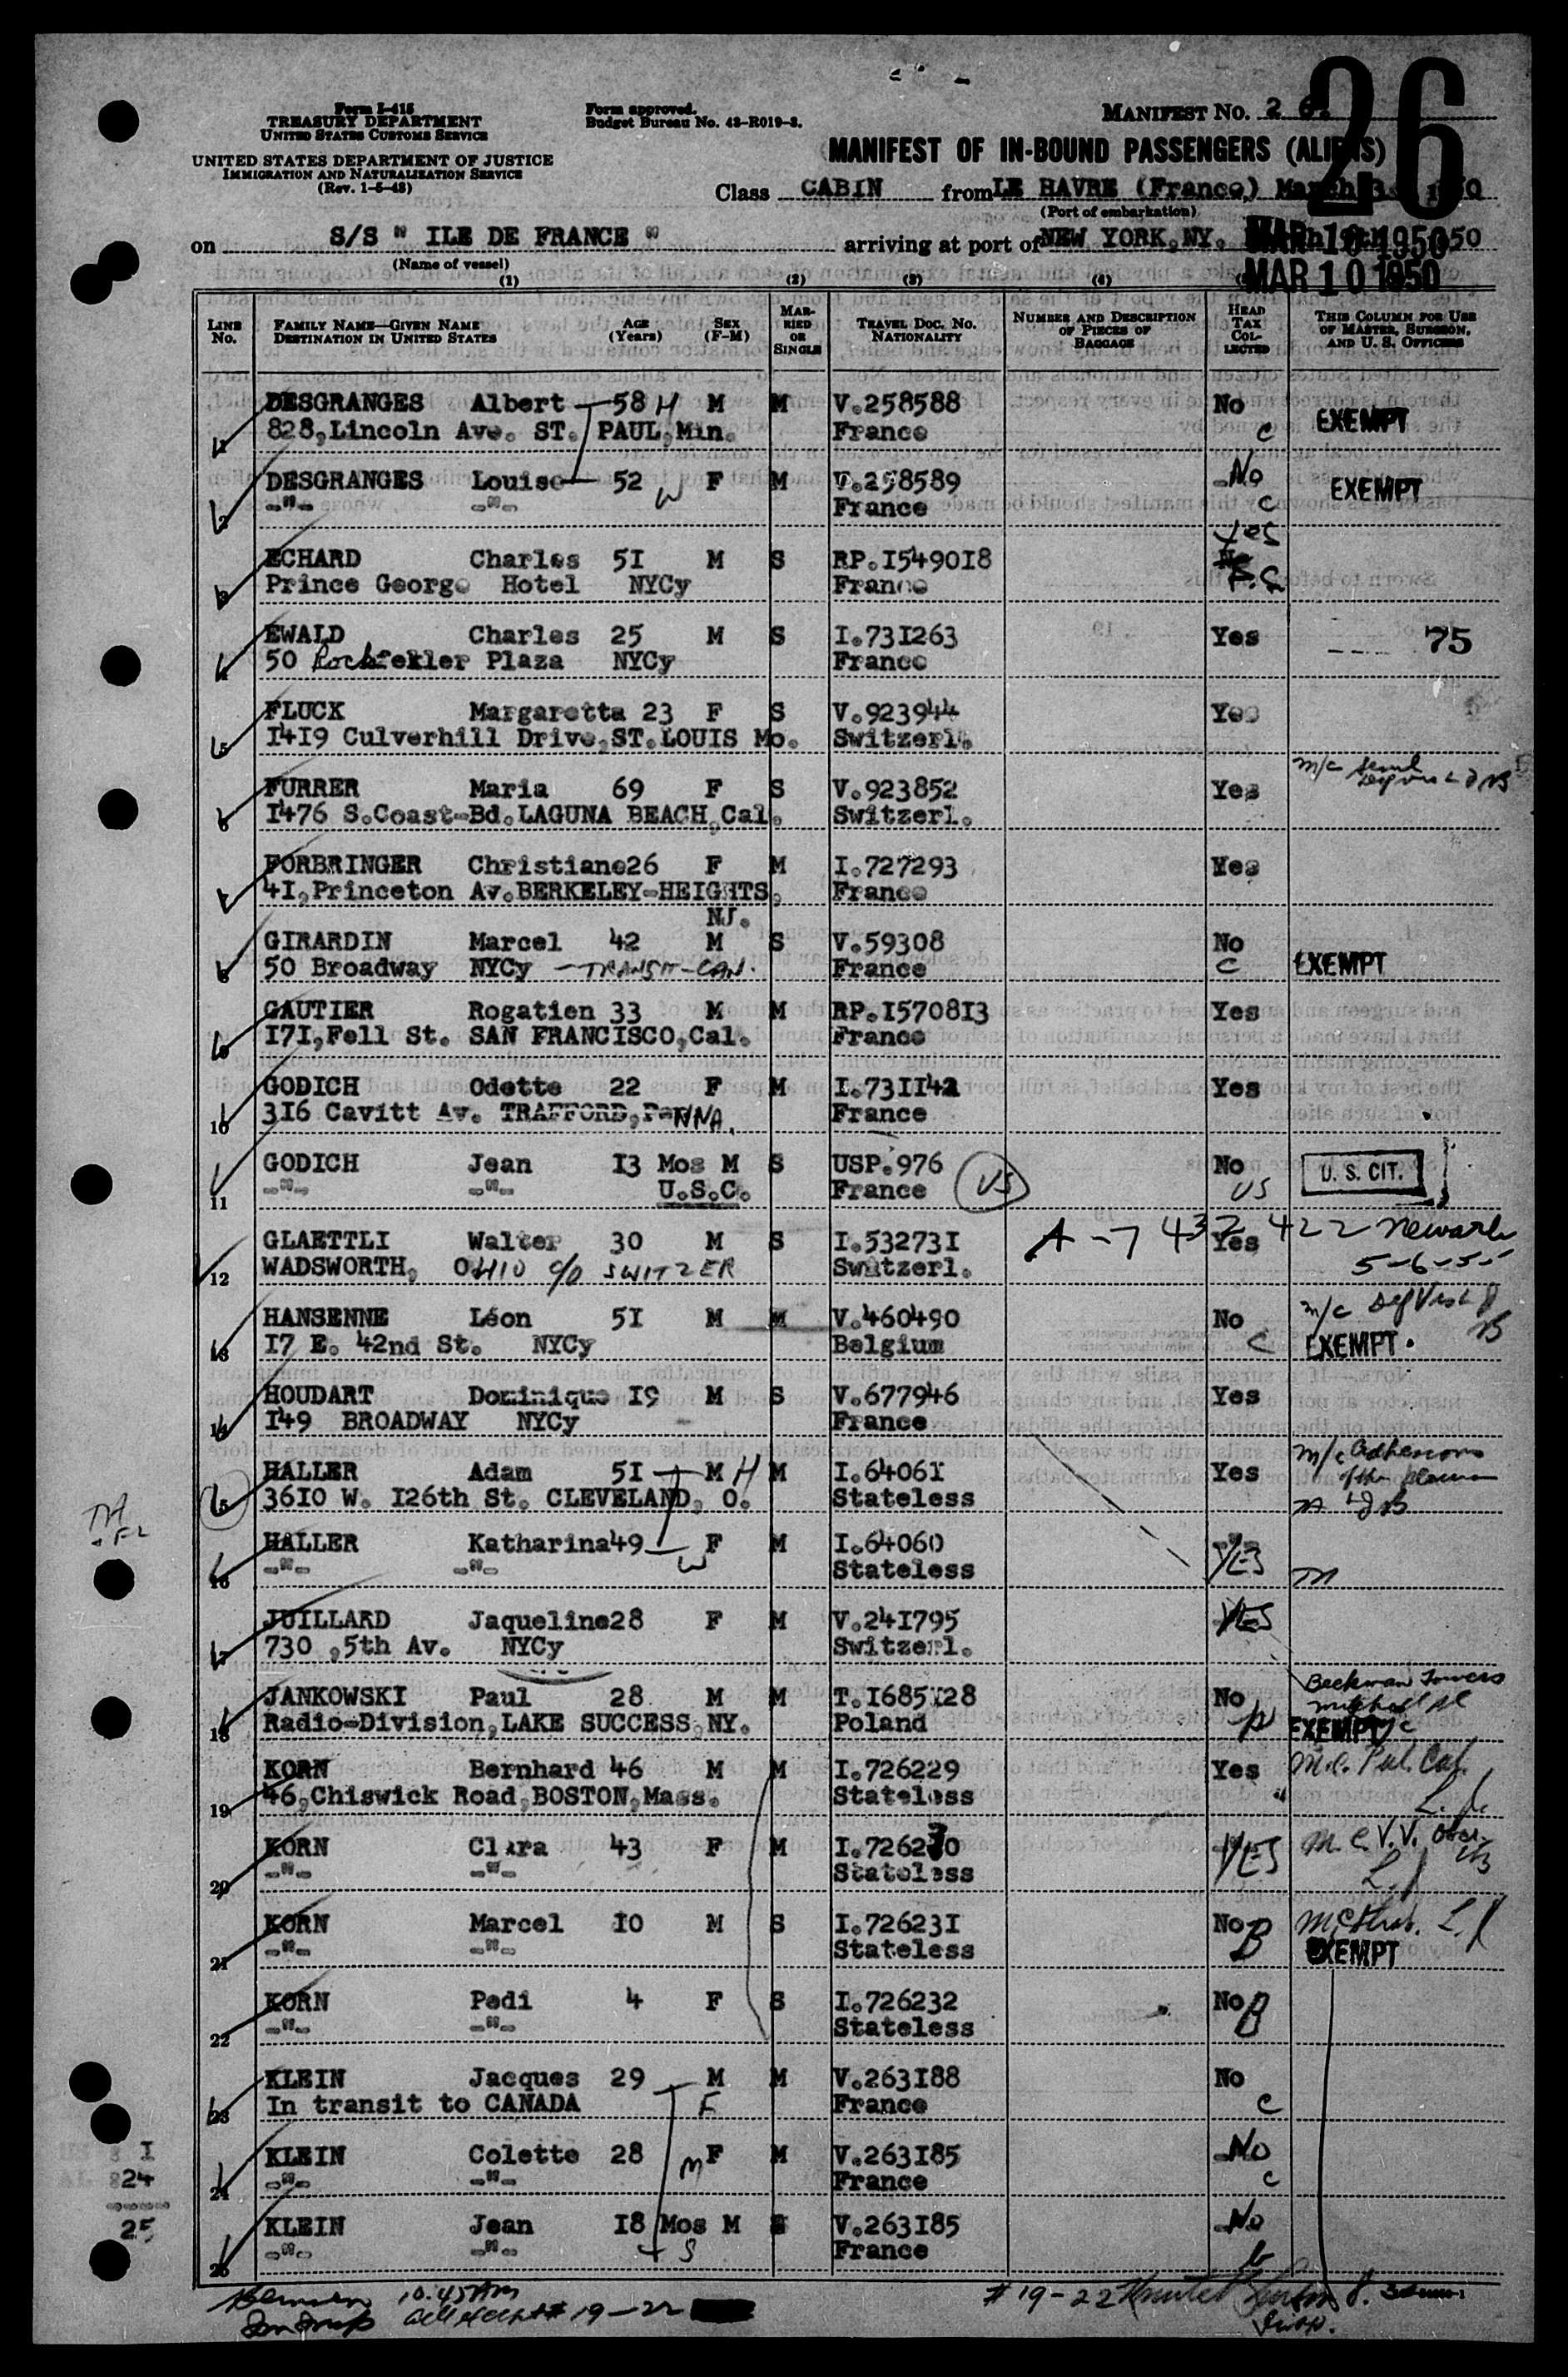 Form I-415
TREASURY DEPARTMENT
UNITED STATES CUSTOMS SERVICE
UNITED STATES DEPARTMENT OF JUSTICE
IMMIGRATION AND NATURALIZATION SERVICE
(Rev. 1-5-48)
Form approved.
Budget Bureau No. 43-R019-3.
MANIFEST No. 2 6.
26
MANIFEST OF IN-BOUND PASSENGERS (ALIENS)
Class CABIN from LE HAVRE (France,) March 3
(Port of embarkation)
on S/S " ILE DE FRANCE " arriving at port of NEW YORK,NY.
MAR 10 1950
MAR 10 1950
(Name of vessel)
(1) (2) (3) (4)
LINE No. FAMILY NAME—GIVEN NAME DESTINATION IN UNITED STATES AGE (Years) SEX (F-M) MARRIED OR SINGLE TRAVEL DOC. No. NATIONALITY NUMBER AND DESCRIPTION OF PIECES OF BAGGAGE HEAD TAX COLLECTED THIS COLUMN FOR USE OF MASTER, SURGEON, AND U. S. OFFICERS
DESGRANGES Albert 58 H M M V.258588 No EXEMPT
1 828,Lincoln Ave. ST. PAUL,Min. France C
DESGRANGES Louise 52 W F M V.258589 No EXEMPT
2 -"- -"- France C
ECHARD Charles 51 M S RP.1549018 Yes No
3 Prince George Hotel NYCy France
EWALD Charles 25 M S I.731263 Yes 75
4 50 Rockfekler Plaza NYCy France
FLUCK Margaretta 23 F S V.923944 Yes
5 1419 Culverhill Drive,ST.LOUIS Mo. Switzerl.
FURRER Maria 69 F S V.923852 Yes m/c
6 1476 S.Coast-Bd.LAGUNA BEACH,Cal. Switzerl.
FORBRINGER Christiane 26 F M I.727293 Yes
7 41,Princeton Av.BERKELEY-HEIGHTS, France
NJ.
GIRARDIN Marcel 42 M S V.59308 No EXEMPT
8 50 Broadway NYCy - TRANSIT-CAN. France C
GAUTIER Rogatien 33 M M RP.1570813 Yes
9 171,Fell St. SAN FRANCISCO,Cal. France
GODICH Odette 22 F M I.731142 Yes
10 316 Cavitt Av. TRAFFORD,PeNNA. France
GODICH Jean 13 Mos M S USP.976 No U. S. CIT.
11 -"- -"- U.S.C. France US US
GLAETTLI Walter 30 M S I.532731 A-7 432 422 Yes Newark
12 WADSWORTH, OHIO c/o SWITZER Switzerl. 5-6-55
HANSENNE Léon 51 M M V.460490 No m/c
13 17 E. 42nd St. NYCy Belgium C EXEMPT
HOUDART Dominique 19 M S V.677946 Yes
14 149 BROADWAY NYCy France
HALLER Adam 51 M H M I.64061 Yes m/c Adhesions
15 3610 W. 126th St. CLEVELAND, O. Stateless of the
HALLER Katharina 49 W F M I.64060 YES
16 -"- -"- Stateless m
JUILLARD Jaqueline 28 F M V.241795 YES
17 730 ,5th Av. NYCy Switzerl.
JANKOWSKI Paul 28 M M T.1685128 No Beekman Towers
18 Radio-Division,LAKE SUCCESS,NY. Poland EXEMPT
KORN Bernhard 46 M M I.726229 Yes
19 46,Chiswick Road,BOSTON,Mass. Stateless
KORN Clara 43 F M I.726230 YES M.C. V.V.
20 -"- -"- Stateless
KORN Marcel 10 M S I.726231 No B
21 -"- -"- Stateless EXEMPT
KORN Pedi 4 F S I.726232 No B
22 -"- -"- Stateless
KLEIN Jacques 29 M M V.263188 No
23 In transit to CANADA F France C
KLEIN Colette 28 M F M V.263185 No
24 -"- -"- France C
KLEIN Jean 18 Mos M S V.263185 No
25 -"- -"- S France
1
24
25
10:45 AM
# 19-22
# 19-22